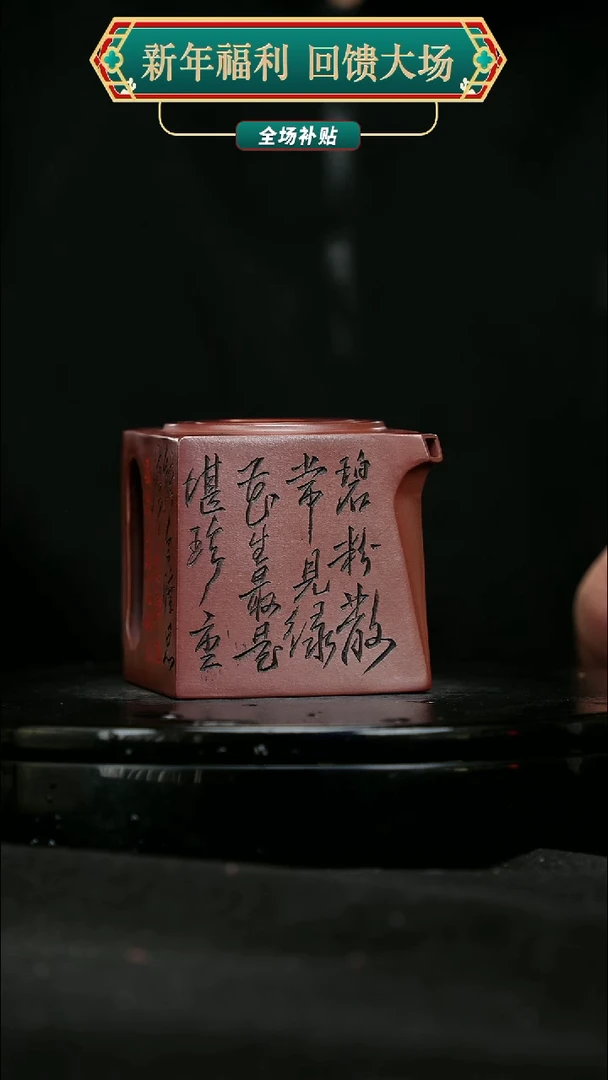 新年福利 回馈大场
全场补贴
碧粉散
常见绿
花生最是
堪珍重